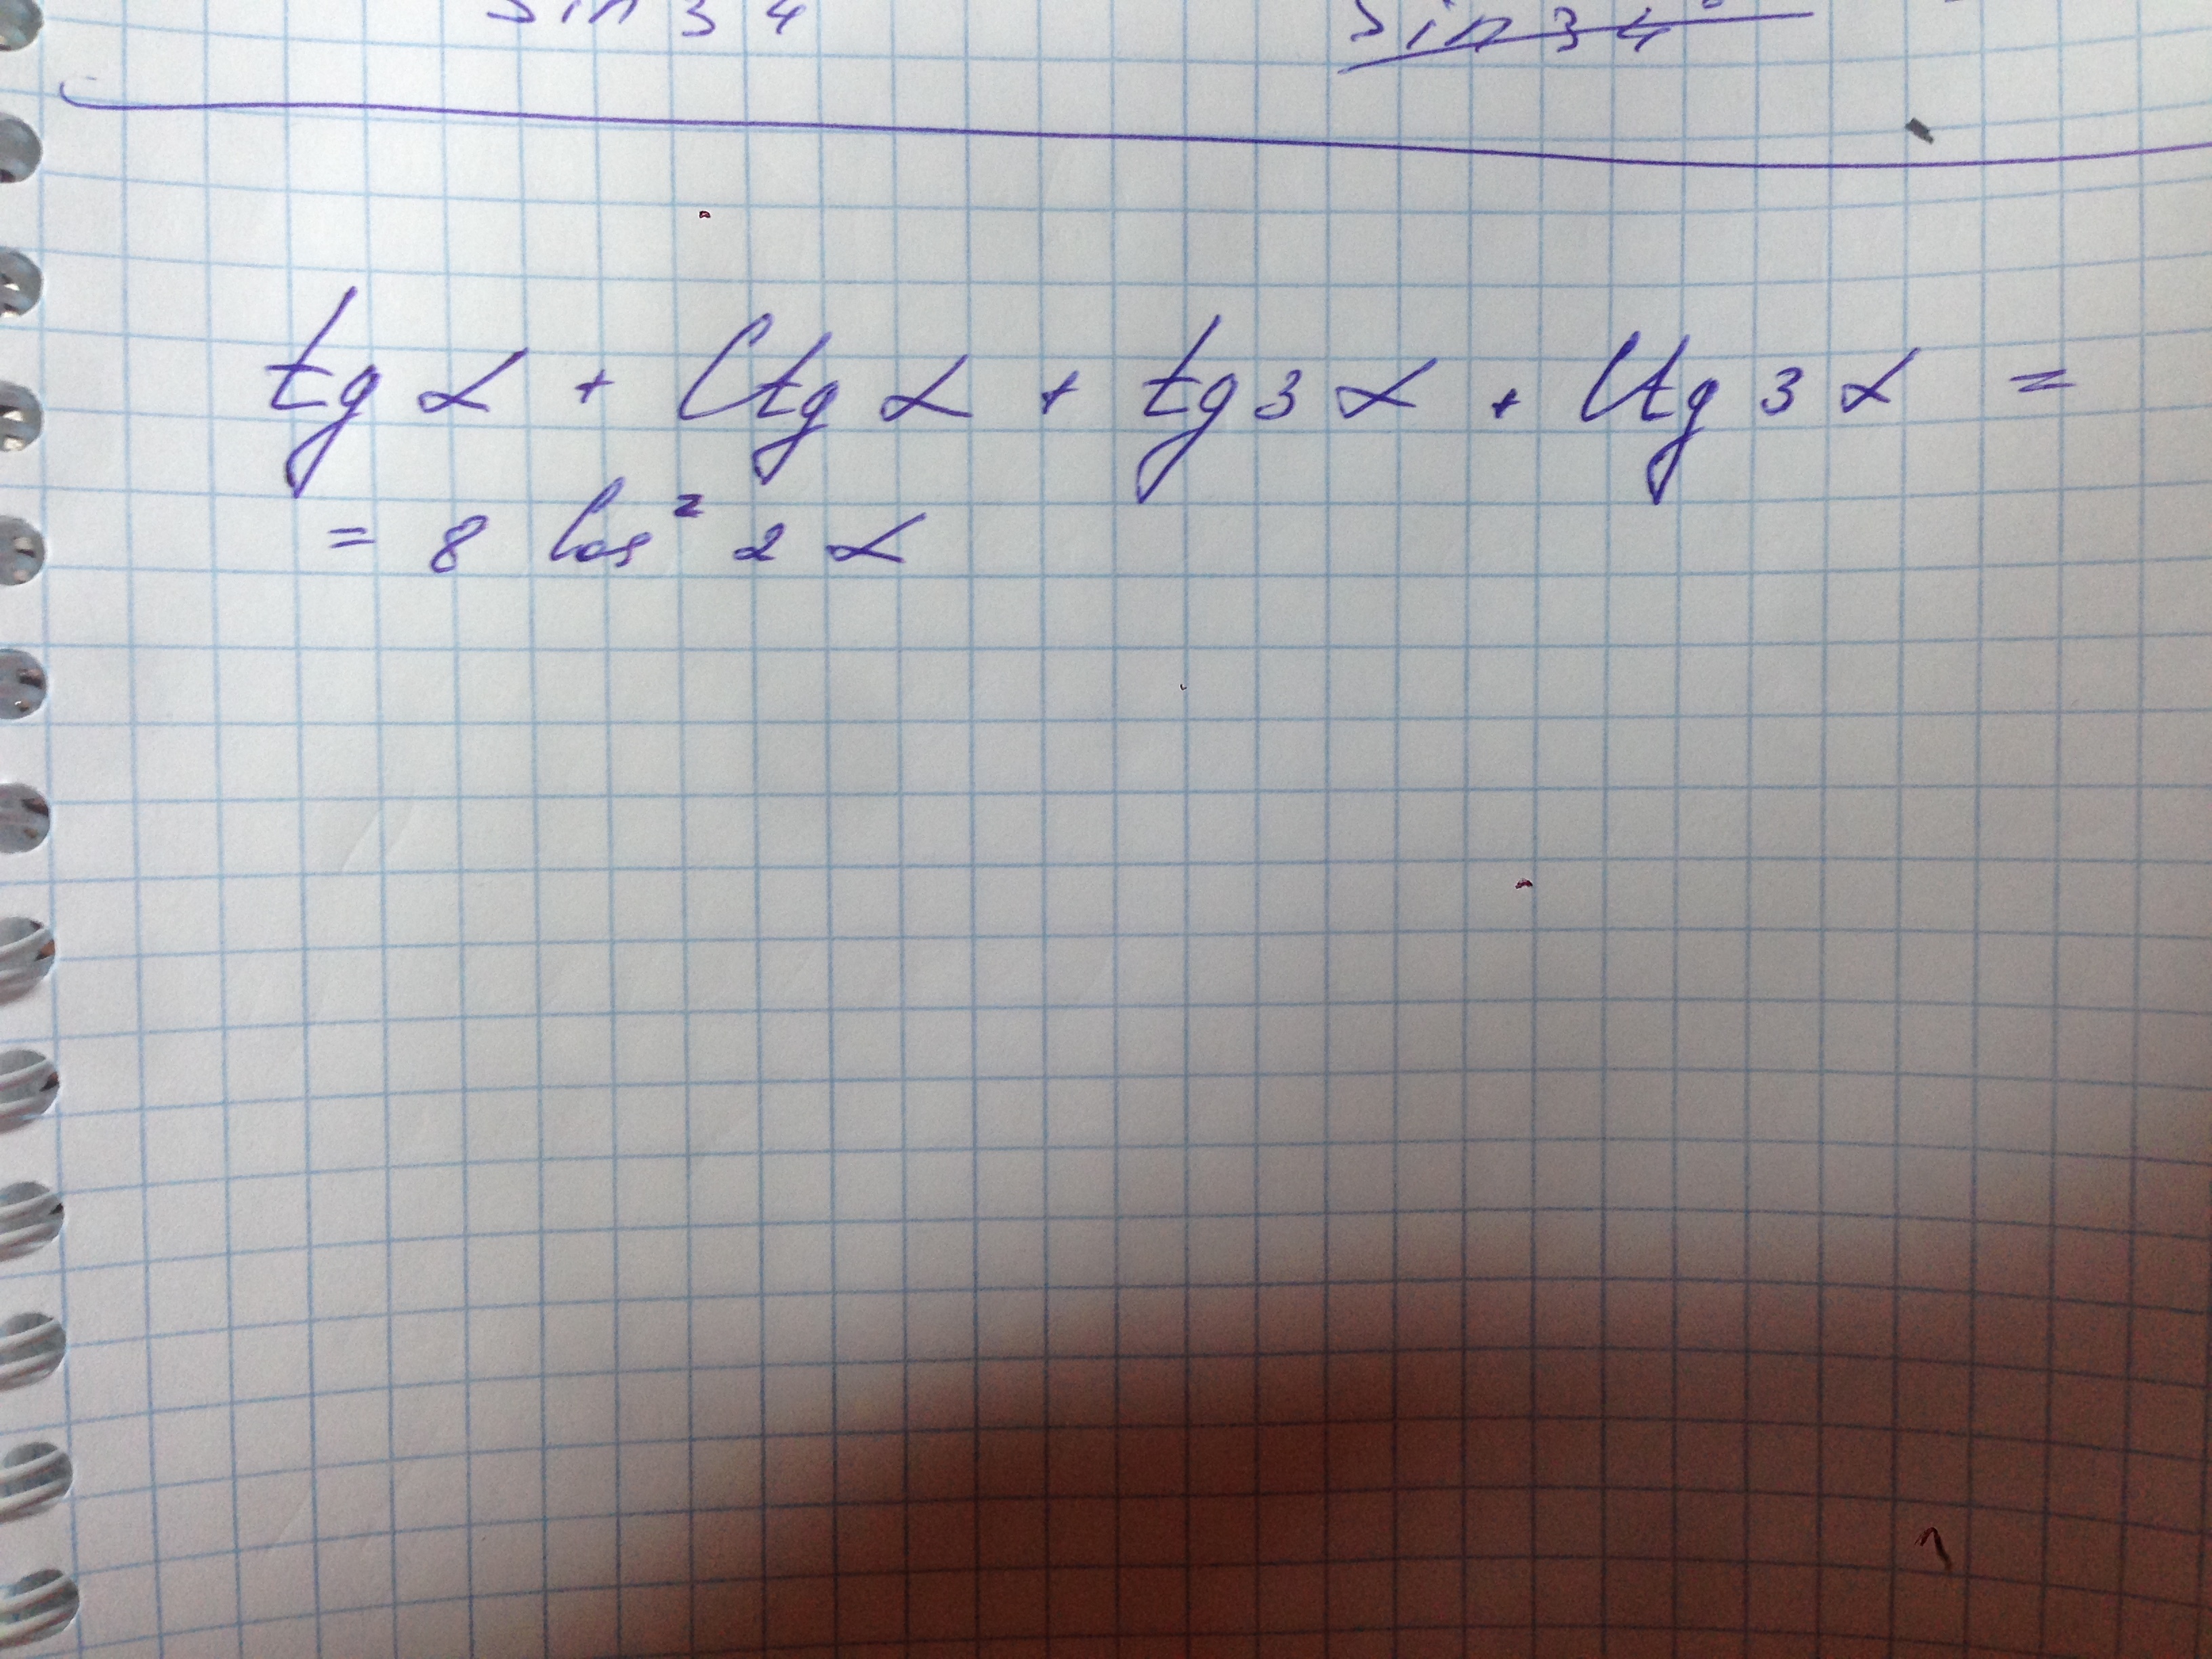 sin 34 sin 34°
tg α + ctg α + tg 3 α + ctg 3 α =
= 8 cos² 2 α